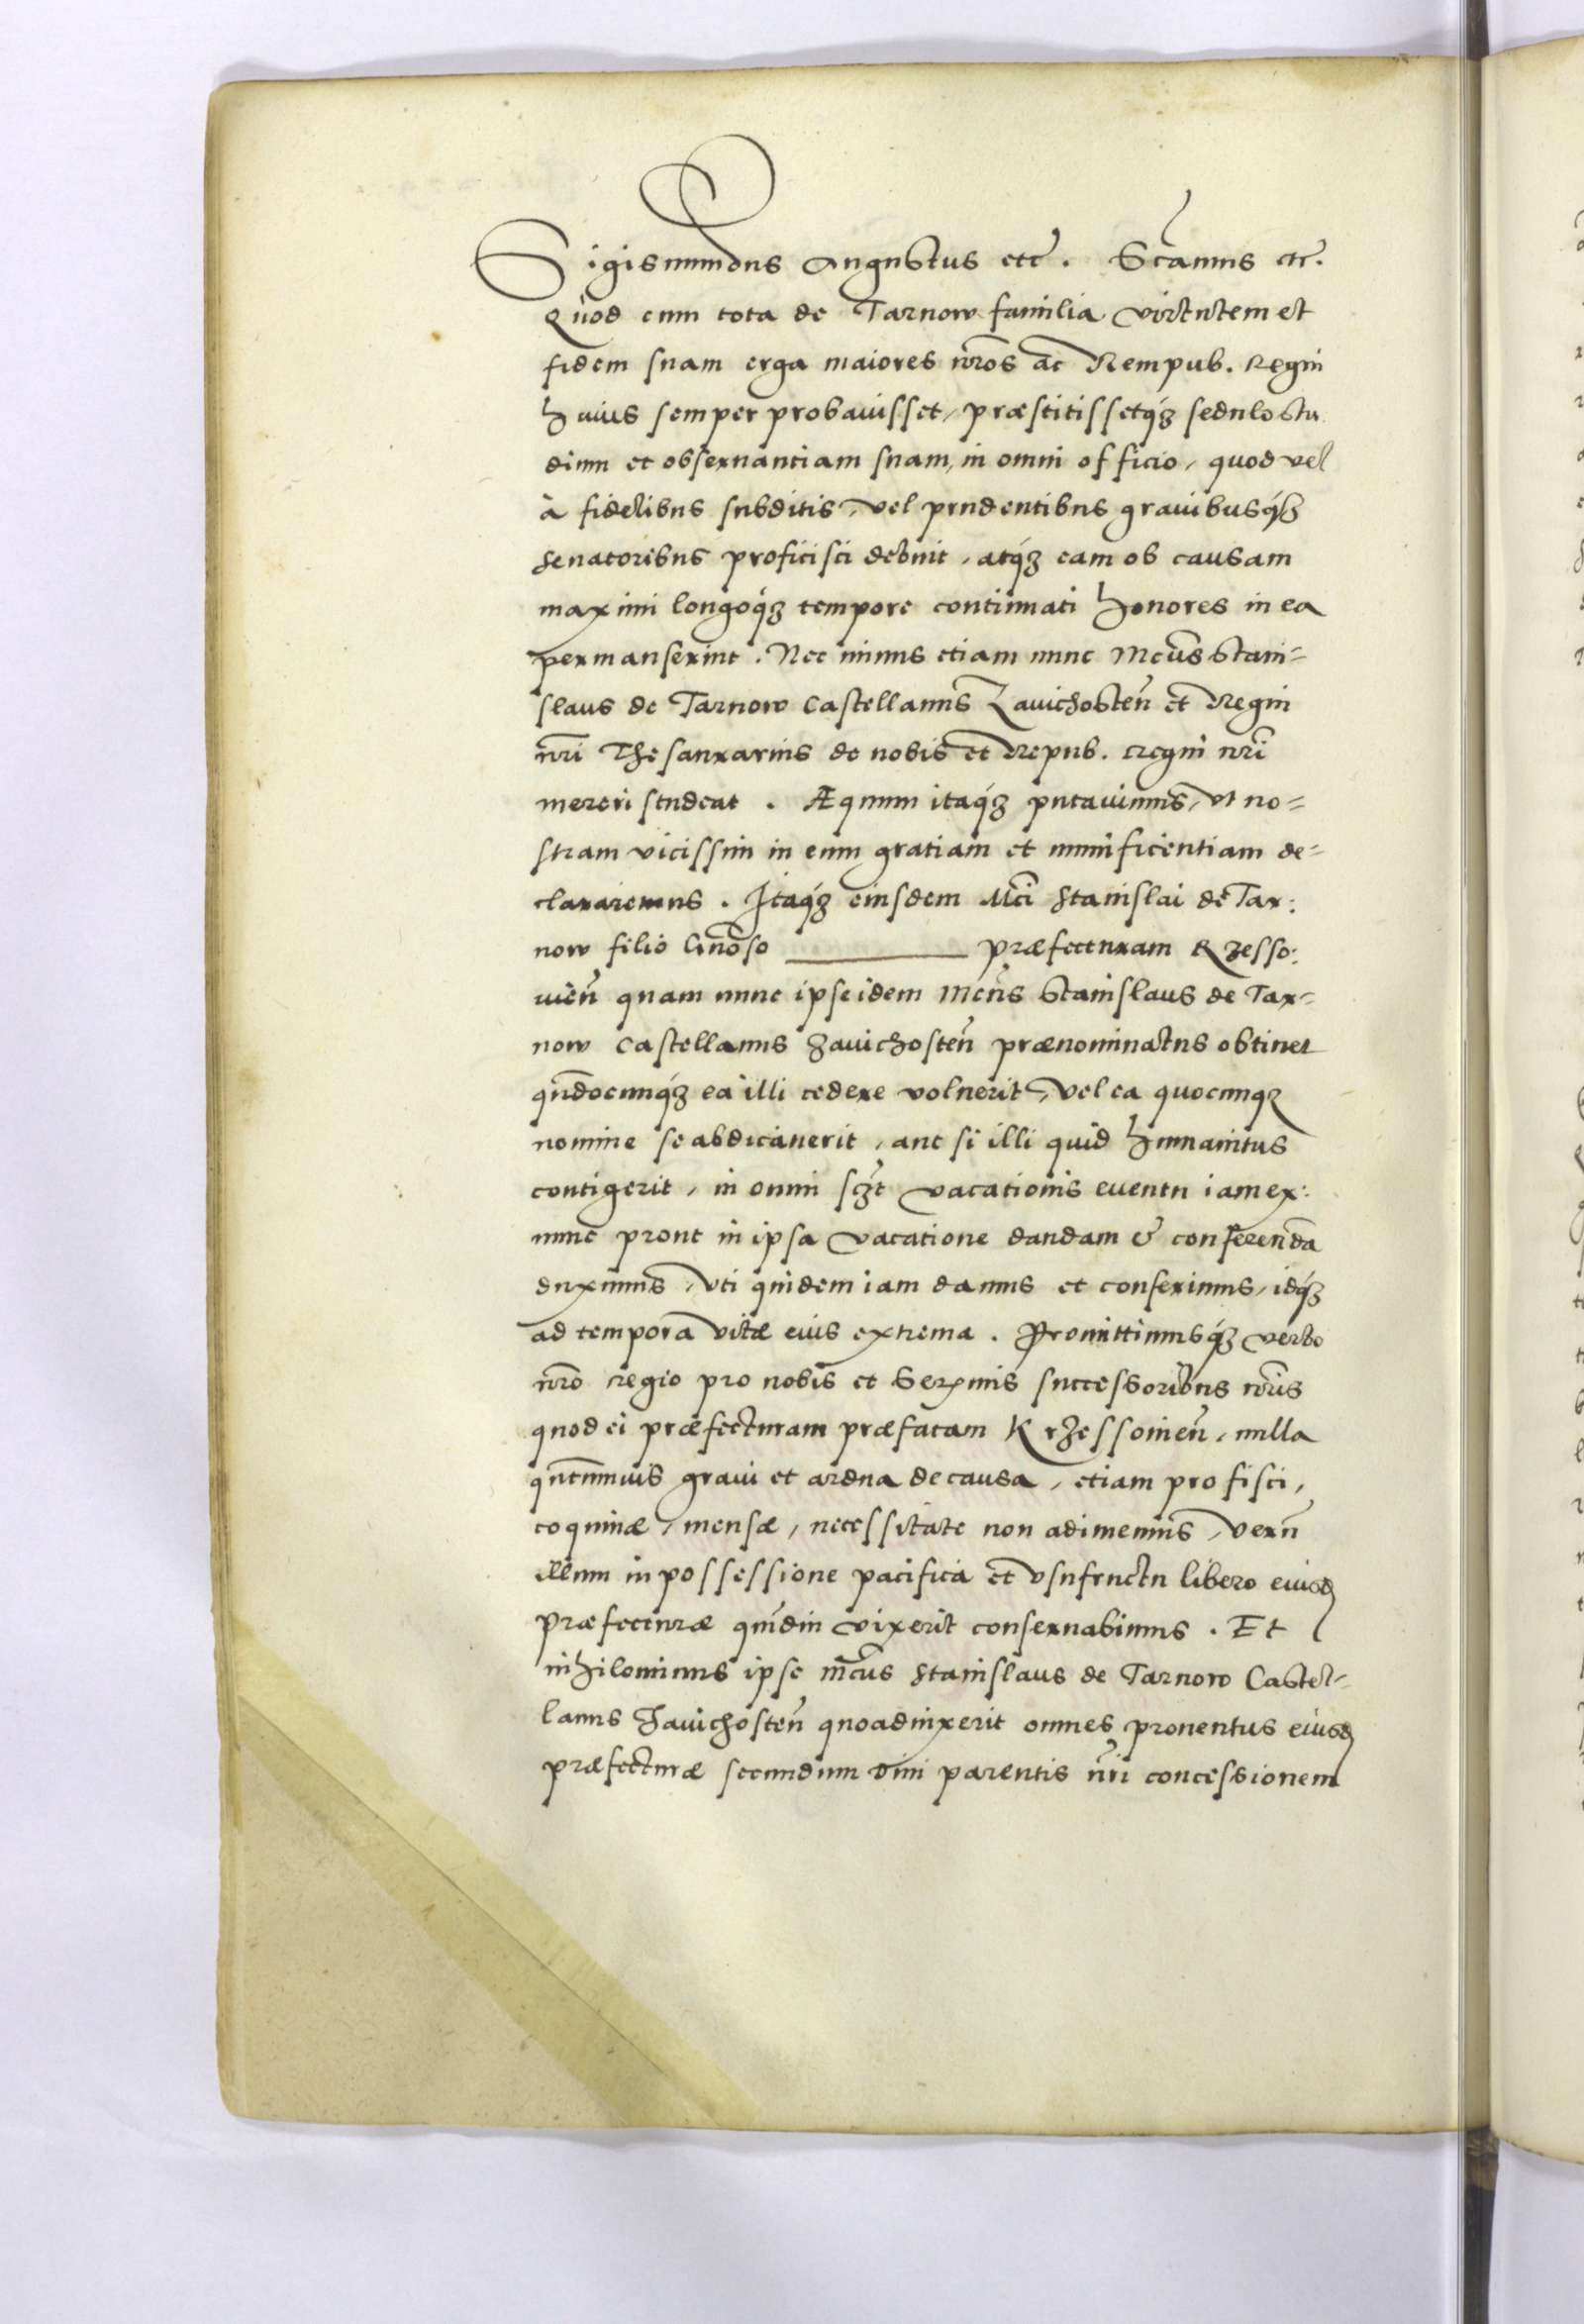 Sigismundus Augustus etc̃. Sc̃amus etc̃.
Quod cum tota de Tarnow familia virtutem et
fidem suam erga maiores nr̃os ac Rempub. Regni
huius semper probauisset, præstitissetqʒ sedulo stu
dium et obseruantiam suam, in omni officio, quod vel
à fidelibus subditis, vel prudentibus grauibusqʒ
senatoribus proficisci debuit, atqʒ eam ob causam
maximi longoqʒ tempore continuati honores in ea
permanserint. Nec minus etiam nunc Mcũs Stani=
slaus de Tarnow Castellanus Zauichosteñ et Regni
nr̃i Thesaurarius de nobis et Repub. Regni nr̃i
mereri studeat. Æquum itaqʒ putauimus, vt no=
stram vicissim in eum gratiam et munificentiam de=
clararemus. Itaqʒ eiusdem Mc̃i Stanislai de Tar:
now filio Gnõso ______ præfecturam Krzesso:
uieñ quam nunc ipse idem Mcñs Stanislaus de Tar=
now Castellanus Zauichosteñ prænominatus obtinet
qñdocunqʒ ea illi cedere voluerit, vel ea quocunqʒ
nomine se abdicauerit, aut si illi quid humanitus
contigerit, in omni scʒt vacationis euentu iam ex:
nunc prout in ipsa vacatione dandam & conferendã
duximus, vti quidem iam damus et conferimus, idqʒ
ad tempora vitæ eius extrema. Promittimusqʒ verbo
nr̃o regio pro nobis et Serẽnis successoribus nr̃is
quod ei præfecturam præfatam Krzessouieñ, nulla
qñtumuis graui et ardua de causa, etiam pro fisci,
coquinæ, mensæ, necessitate non adimemus, verũ
illum in possessione pacifica et vsufructu libero eiusd
præfecturæ quãdiu vixerit conseruabimus. Et
nihilominus ipse mc̃us Stanislaus de Tarnow Castel=
lanus Zauichosteñ quoad uixerit omnes prouentus eiusd
præfecturæ secundum Diui parentis nr̃i concessionem